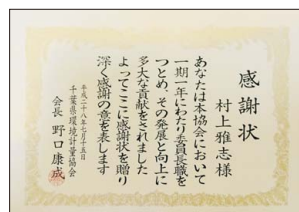 感謝状
村上雅志様
あなたは本協会において
一期一年にわたり委員長職を
つとめ、その発展と向上に
多大な貢献をされました
よってここに感謝状を贈り
深く感謝の意を表します
平成二十八年七月十五日
千葉県環境計量協会
会長 野口康成